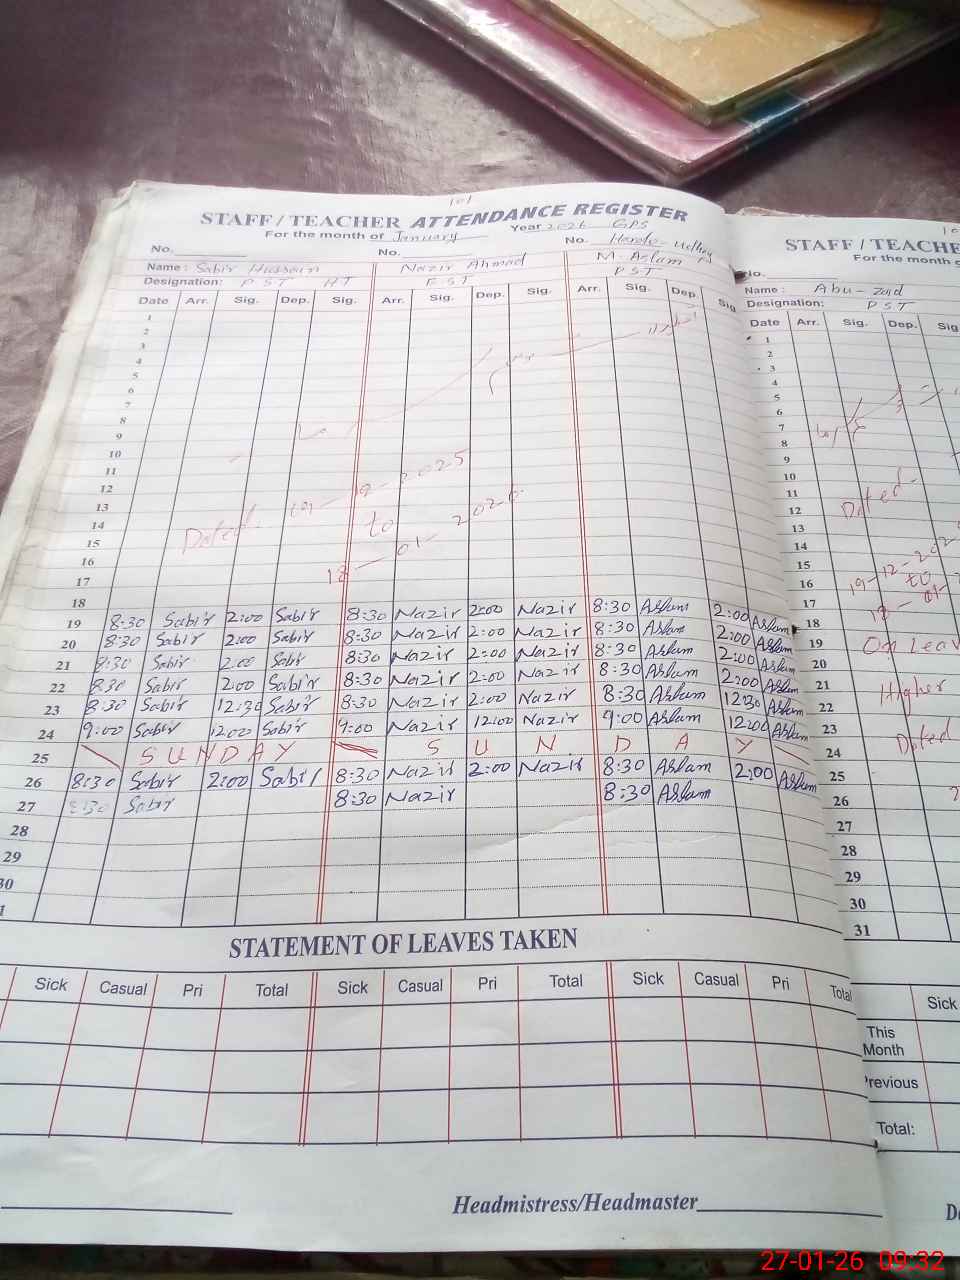 101
STAFF / TEACHER ATTENDANCE REGISTER
For the month of January Year 2026 GPS
No. No. No.
Name: Sabir Hussain Nazir Ahmad M. Aslam
Designation: PST HT PST PST
Date Arr. Sig. Dep. Sig. Arr. Sig. Dep. Sig. Arr. Sig. Dep. Sig
1
2
3
4
5
6
7
8
9
10
11
12
13
14
15
16
17
18
Dated
to
18-01-2026
19 8:30 Sabir 2:00 Sabir 8:30 Nazir 2:00 Nazir 8:30 Aslam 2:00 Aslam
20 8:30 Sabir 2:00 Sabir 8:30 Nazir 2:00 Nazir 8:30 Aslam 2:00 Aslam
21 8:30 Sabir 2:00 Sabir 8:30 Nazir 2:00 Nazir 8:30 Aslam 2:00 Aslam
22 8:30 Sabir 2:00 Sabir 8:30 Nazir 2:00 Nazir 8:30 Aslam 2:00 Aslam
23 8:30 Sabir 12:30 Sabir 8:30 Nazir 2:00 Nazir 8:30 Aslam 12:30 Aslam
24 9:00 Sabir 12:00 Sabir 9:00 Nazir 12:00 Nazir 9:00 Aslam 12:00 Aslam
25 SUNDAY S U N D A Y
26 8:30 Sabir 2:00 Sabir 8:30 Nazir 2:00 Nazir 8:30 Aslam 2:00 Aslam
27 8:30 Sabir 8:30 Nazir 8:30 Aslam
28
29
30
1
STATEMENT OF LEAVES TAKEN
Sick Casual Pri Total Sick Casual Pri Total Sick Casual Pri Total
Headmistress/Headmaster
STAFF / TEACHE
For the month
No.
Name: Abu-Zaid
Designation: PST
Date Arr. Sig. Dep. Sig
1
2
3
4
5
6
7
8
9
10
11
12
13
14
15
16
17
18
19
20
21
22
23
24
25
26
27
28
29
30
31
Dated
19-12-202
to
18-01-
On Leav
Higher
Dated
Sick
This
Month
Previous
Total:
27-01-26 09:32